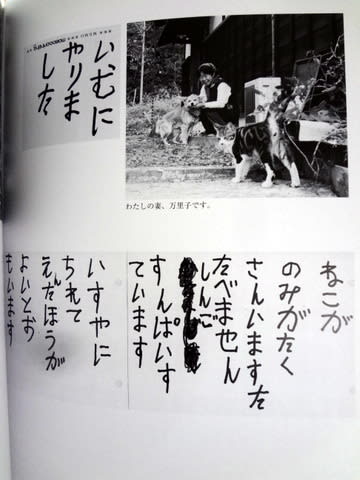 いむに
やりま
した
わたしの妻、万里子です。
ねこが
のみがたく
さんいますた
たべません
しんご
すんぱいす
ています
いすやに
ちれて
えんたほうが
よいとお
もいます